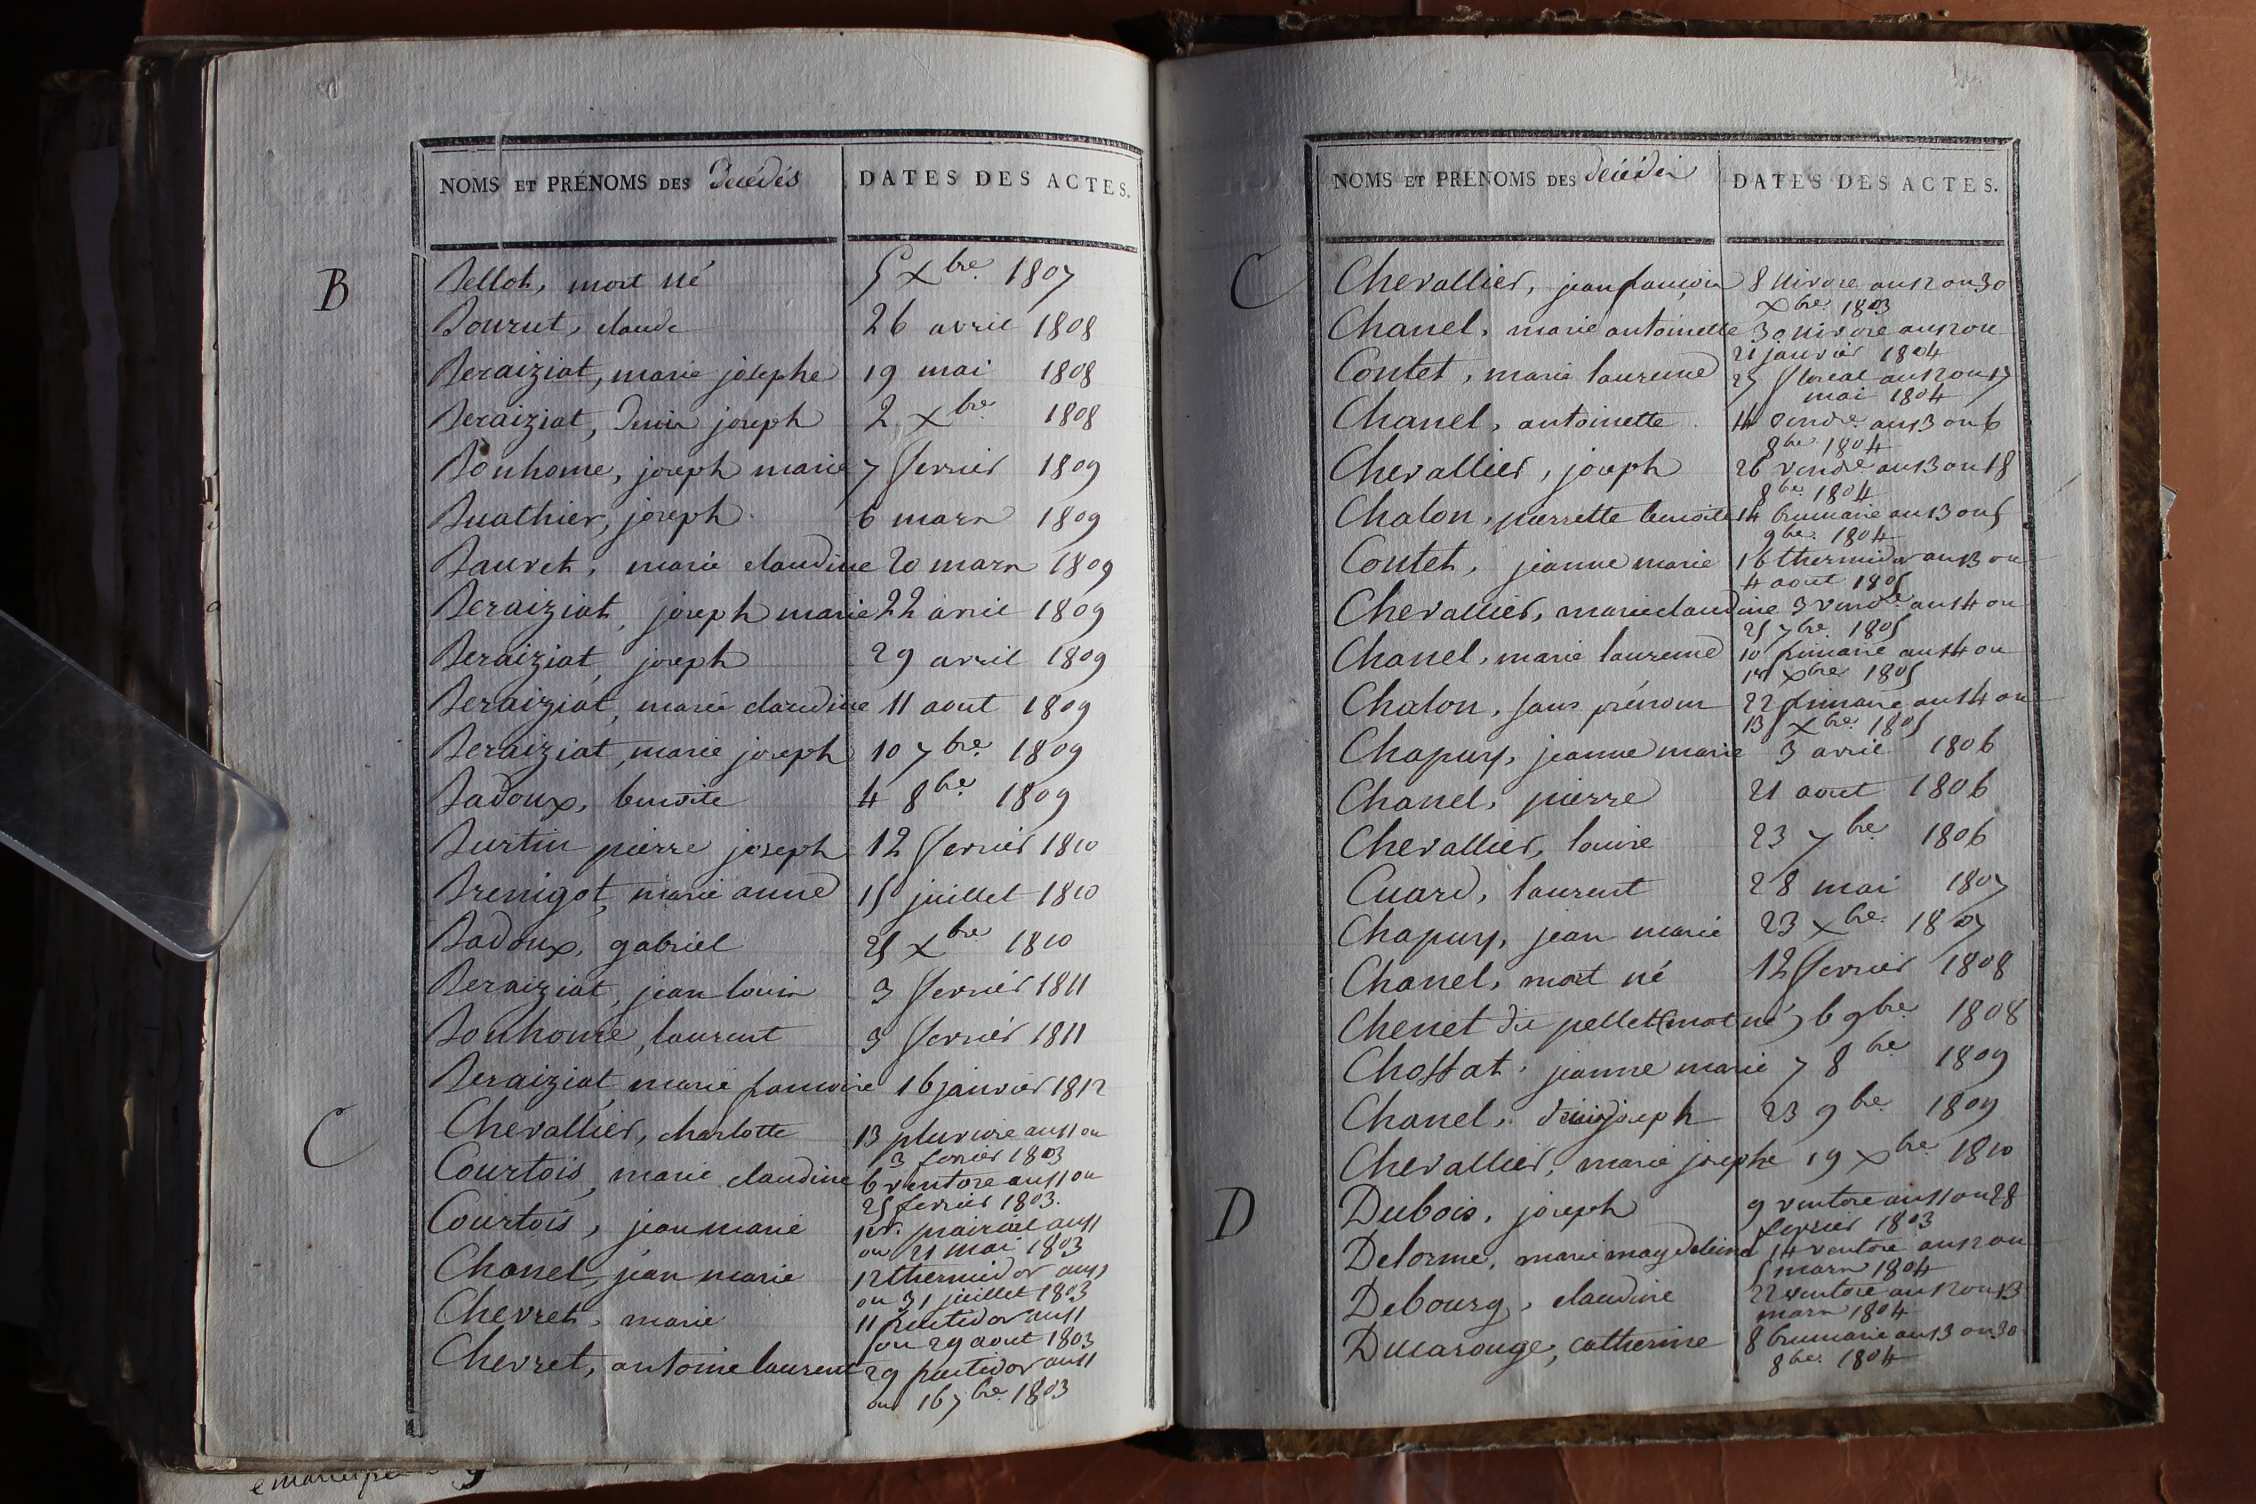 NOMS ET PRÉNOMS DES Décédés DATES DES ACTES.
B
Bellot, mort né 5 Xbre 1807
Bourut, claude 26 avril 1808
Beraiziat, marie josephe 19 mai 1808
Beraiziat, Denis joseph 2 Xbre 1808
Bonhome, joseph marie 7 fevrier 1809
Buathier, joseph 6 mars 1809
Bauret, marie claudine 20 mars 1809
Beraiziat, joseph marie 22 avril 1809
Beraiziat, joseph 29 avril 1809
Beraiziat, marie claudine 11 aout 1809
Beraiziat, marie joseph 10 7bre 1809
Badoux, benoite 4 8bre 1809
Burtin pierre joseph 12 fevrier 1810
Brenigot, marie anne 15 juillet 1810
Badoux, gabriel 25 Xbre 1810
Beraiziat, jean louis 3 fevrier 1811
Bonhome, laurent 3 fevrier 1811
Beraiziat marie francoise 16 janvier 1812
C
Chevallier, charlotte 13 pluviose an 11 ou
3 fevrier 1803
Courtois, marie claudine 6 ventose an 11 ou
25 fevrier 1803.
Courtois, jean marie 1er. prairial an 11
ou 21 mai 1803
Chanel, jean marie 12 thermidor an 11
ou 31 juillet 1803
Chevret, marie 11 fructidor an 11
ou 29 aout 1803
Chevret, antoine laurent 29 fructidor an 11
ou 16 7bre 1803
NOMS ET PRÉNOMS DES décédés DATES DES ACTES.
C
Chevallier, jean françois 8 Nivose an 12 ou 30
Xbre 1803
Chanel, marie antoinette 30 nivose an 12 ou
21 janvier 1804
Contet, marie laurence 27 floreal an 12 ou 17
mai 1804
Chanel, antoinette. 14 vendre. an 13 ou 6
8bre 1804
Chevallier, joseph 26 vendre. an 13 ou 18
8bre. 1804
Chalon, pierrette benoite 14 brumaire an 13 ou 5
9bre. 1804
Contet, jeanne marie 16 thermidor an 13 ou
4 aout 1805
Chevallier, marie claudine 3 vendre. an 14 ou
25 7bre. 1805
Chanel, marie laurence 10 frimaire an 14 ou
1er Xbre 1805
Chalon, sans prénom 22 frimaire an 14 ou
13 Xbre. 1805
Chapuy, jeanne marie 3 avril 1806
Chanel, pierre 21 aout 1806
Chevallier, louise 23 7bre. 1806
Cuard, laurent 28 mai 1807
Chapuy, jean marie 23 Xbre. 1807
Chanel, mort né 12 fevrier 1808
Chenet dit pellet (mort né) 6 9bre. 1808
Chossat, jeanne marie 7 8bre 1809
Chanel, denis joseph 23 9bre. 1809
Chevallier, marie josephe 19 Xbre. 1810
D
Dubois, joseph 9 ventose an 11 ou 28
fevrier 1803
Delorme, marie magdeleine 14 ventose an 12 ou
5 mars 1804
Debourg, claudine 22 ventose an 12 ou 13
mars 1804
Ducarouge, catherine 8 brumaire an 13 ou 30
8bre. 1804